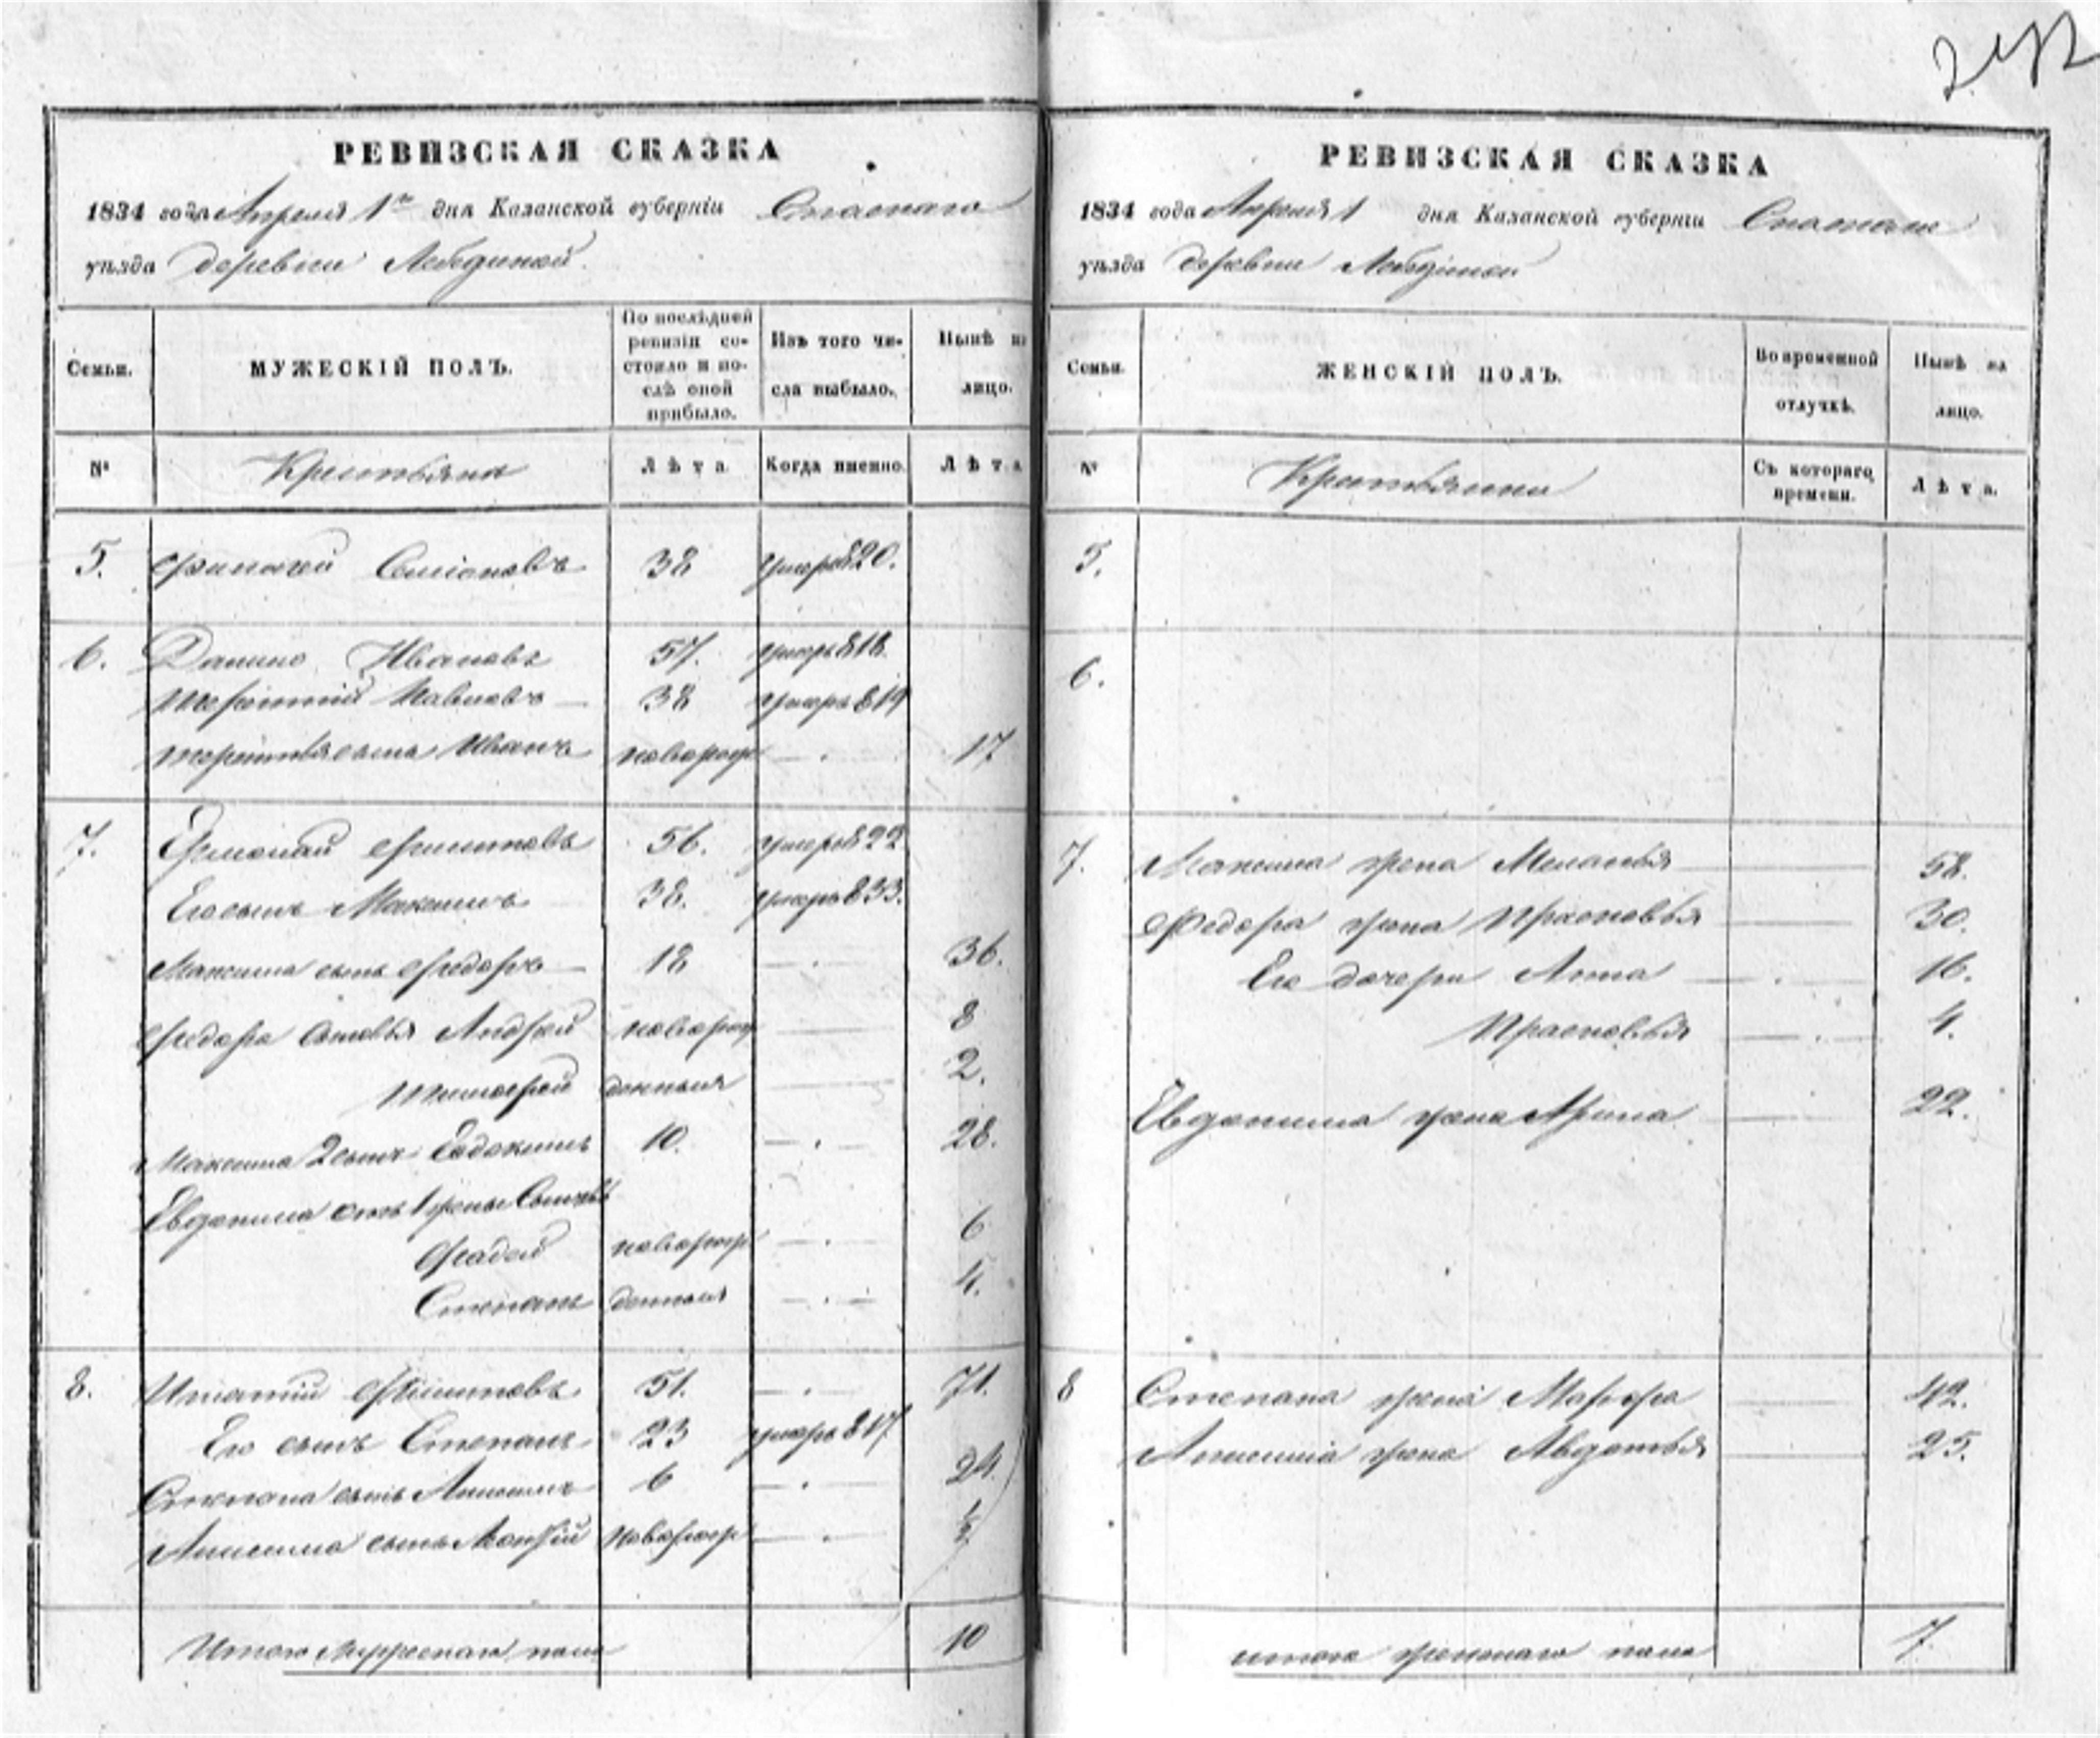 РЕВИЗСКАЯ СКАЗКА
1834 года Апреля 1го дня Казанской губерніи Спаскаго
уѣзда деревни Лебединой
Семьи.
МУЖЕСКІЙ ПОЛЪ.
По послѣдней ревизіи состояло и послѣ оной прибыло.
Изъ того числа выбыло.
Нынѣ на лицо.
№
Крестьяна
Лѣта
Когда именно.
Лѣта
5. Семіоновъ 38 умеръ 820.
6. Данило Ивановъ 57. умеръ 818
Терентий Павловъ — 38 умеръ 819
Терентья сынъ Иванъ новорож — 17
7. Ермолай Филиповъ 56. умеръ 822
Его сынъ Максимъ 38. умеръ 833.
Максима сынъ Федоръ — 18 — 36.
Федора сыновья Андрей новорож — 8
Тимофей денныя — 2.
Максима 2 сынъ Евдокимъ 10. — 28.
Евдокима отъ 1 жены сыновья
Фадей новорож — 6
Степанъ денныя — 4.
8. Игнатій Филиповъ 51. — 71.
Его сынъ Степанъ 23 умеръ 817
Степана сынъ Анисимъ 6 — 24
Анисима сынъ новорож — ½
Итого мужескаго пола 10
РЕВИЗСКАЯ СКАЗКА
1834 года Апреля 1 дня Казанской губерніи Спаскаго
уѣзда деревни Лебединой
Семьи.
ЖЕНСКІЙ ПОЛЪ.
Во временной отлучкѣ.
Нынѣ на лицо.
№
Крестьянина
Съ котораго времени.
Лѣта.
5.
6.
7. Максима жена Меланья — 58.
Федора жена Прасковья — 30.
Его дочери Анна — 16.
Прасковья — 4.
Евдокима жена Арина — 22.
8 Степана жена Марфа — 42.
Анисима жена Авдотья — 25.
итого женскаго пола 7.